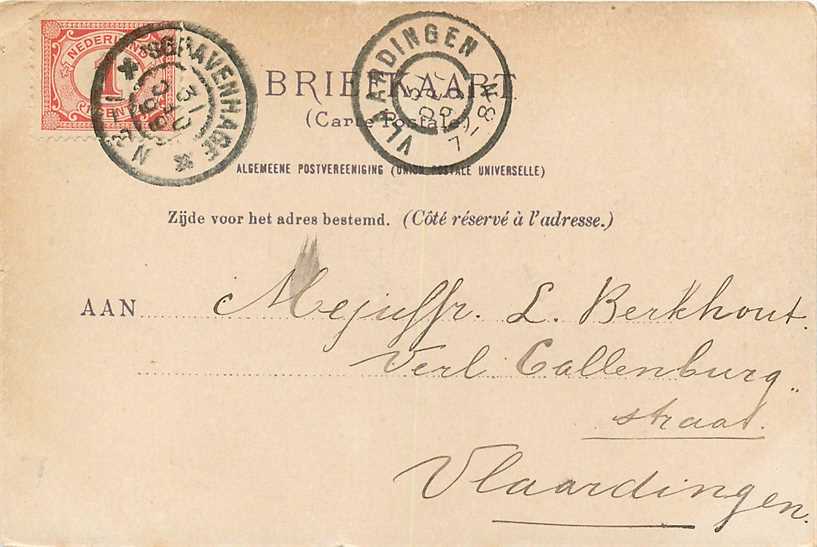 NEDERLAND
1
CENT
'SGRAVENHAGE
VLAARDINGEN
7-8N
BRIEFKAART.
(Carte Postale)
ALGEMEENE POSTVEREENIGING (UNION POSTALE UNIVERSELLE)
Zijde voor het adres bestemd. (Côté réservé à l'adresse.)
AAN Mejuffr. L. Berkhout.
Verl Callenburg"
straat.
Vlaardingen.